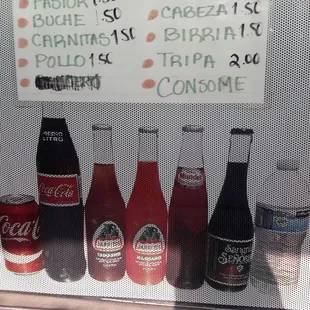 PASTOR
BUCHE 1.50
CARNITAS 1.50
POLLO 1.50
CABEZA 1.50
BIRRIA 1.50
TRIPA 2.00
CONSOME
MEDIO LITRO
Coca-Cola
Coca-Cola
JARRITOS
JARRITOS
Mundet
Sangría
SEÑORIAL